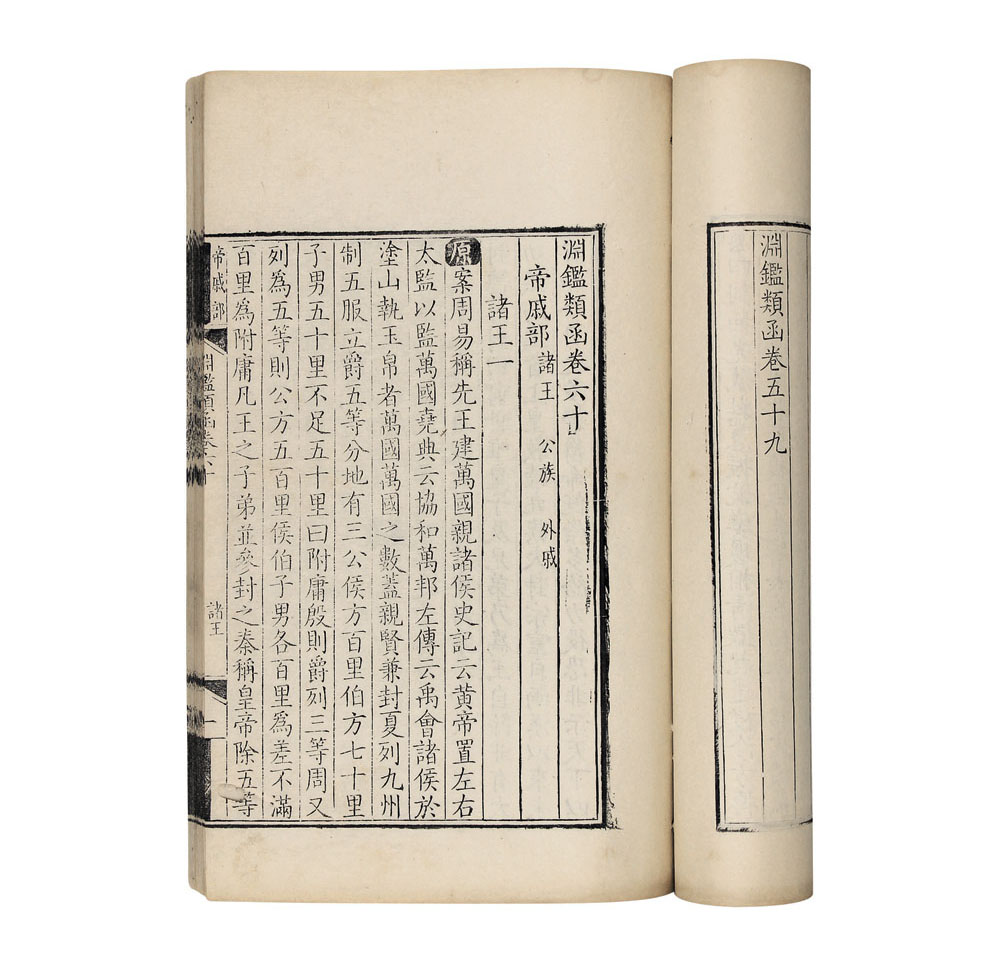 淵鑑類函卷五十九
淵鑑類函卷六十
帝戚部 諸王 公族 外戚
諸王一
原案周易稱先王建萬國親諸侯史記云黃帝置左右
太監以監萬國堯典云協和萬邦左傳云禹會諸侯於
塗山執玉帛者萬國萬國之數蓋親賢兼封夏列九州
制五服立爵五等分地有三公侯方百里伯方七十里
子男五十里不足五十里曰附庸殷則爵列三等周又
列為五等則公方五百里侯伯子男各百里為差不滿
百里為附庸凡王之子弟並參封之秦稱皇帝除五等
帝戚部 淵鑑類函卷六十 諸王 一